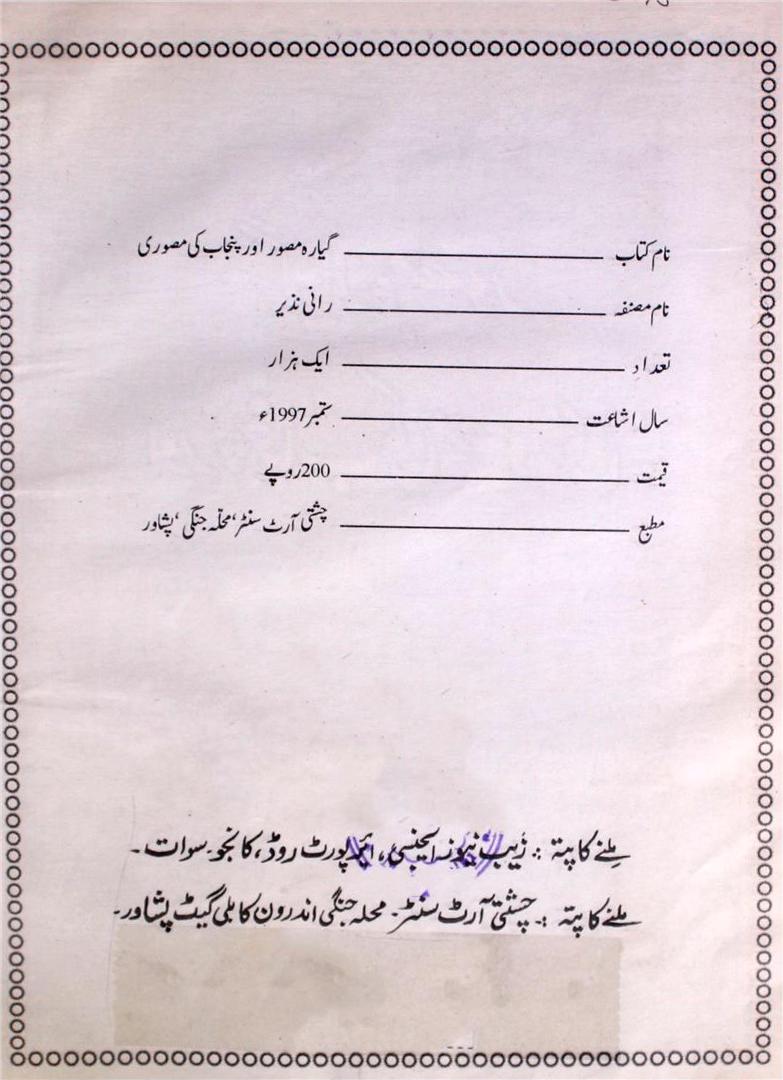 نام کتاب ______ گیارہ مصور اور پنجاب کی مصوری
نام مصنفہ ______ رانی نذیر
تعداد ______ ایک ہزار
سال اشاعت ______ ستمبر 1997ء
قیمت ______ 200 روپے
مطبع ______ چشتی آرٹ سنٹر، محلہ جنگی، پشاور
ملنے کا پتہ :۔ زیب نیوز ایجنسی، ائرپورٹ روڈ، کانجو۔ سوات۔
ملنے کا پتہ :۔ چشتی آرٹ سنٹر۔ محلہ جنگی اندرون کابلی گیٹ پشاور۔